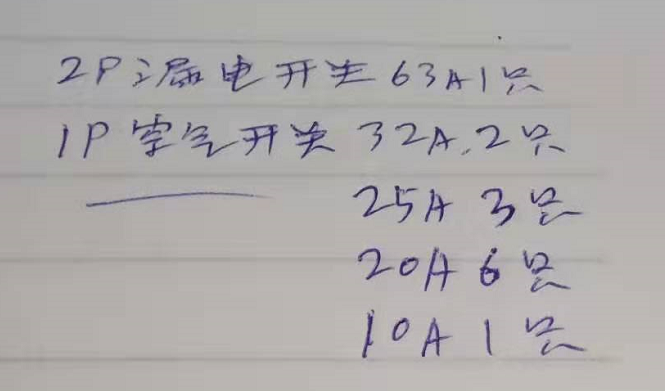 2P漏电开关63A1只
1P空气开关 32A.2只
25A 3只
20A 6只
10A 1只